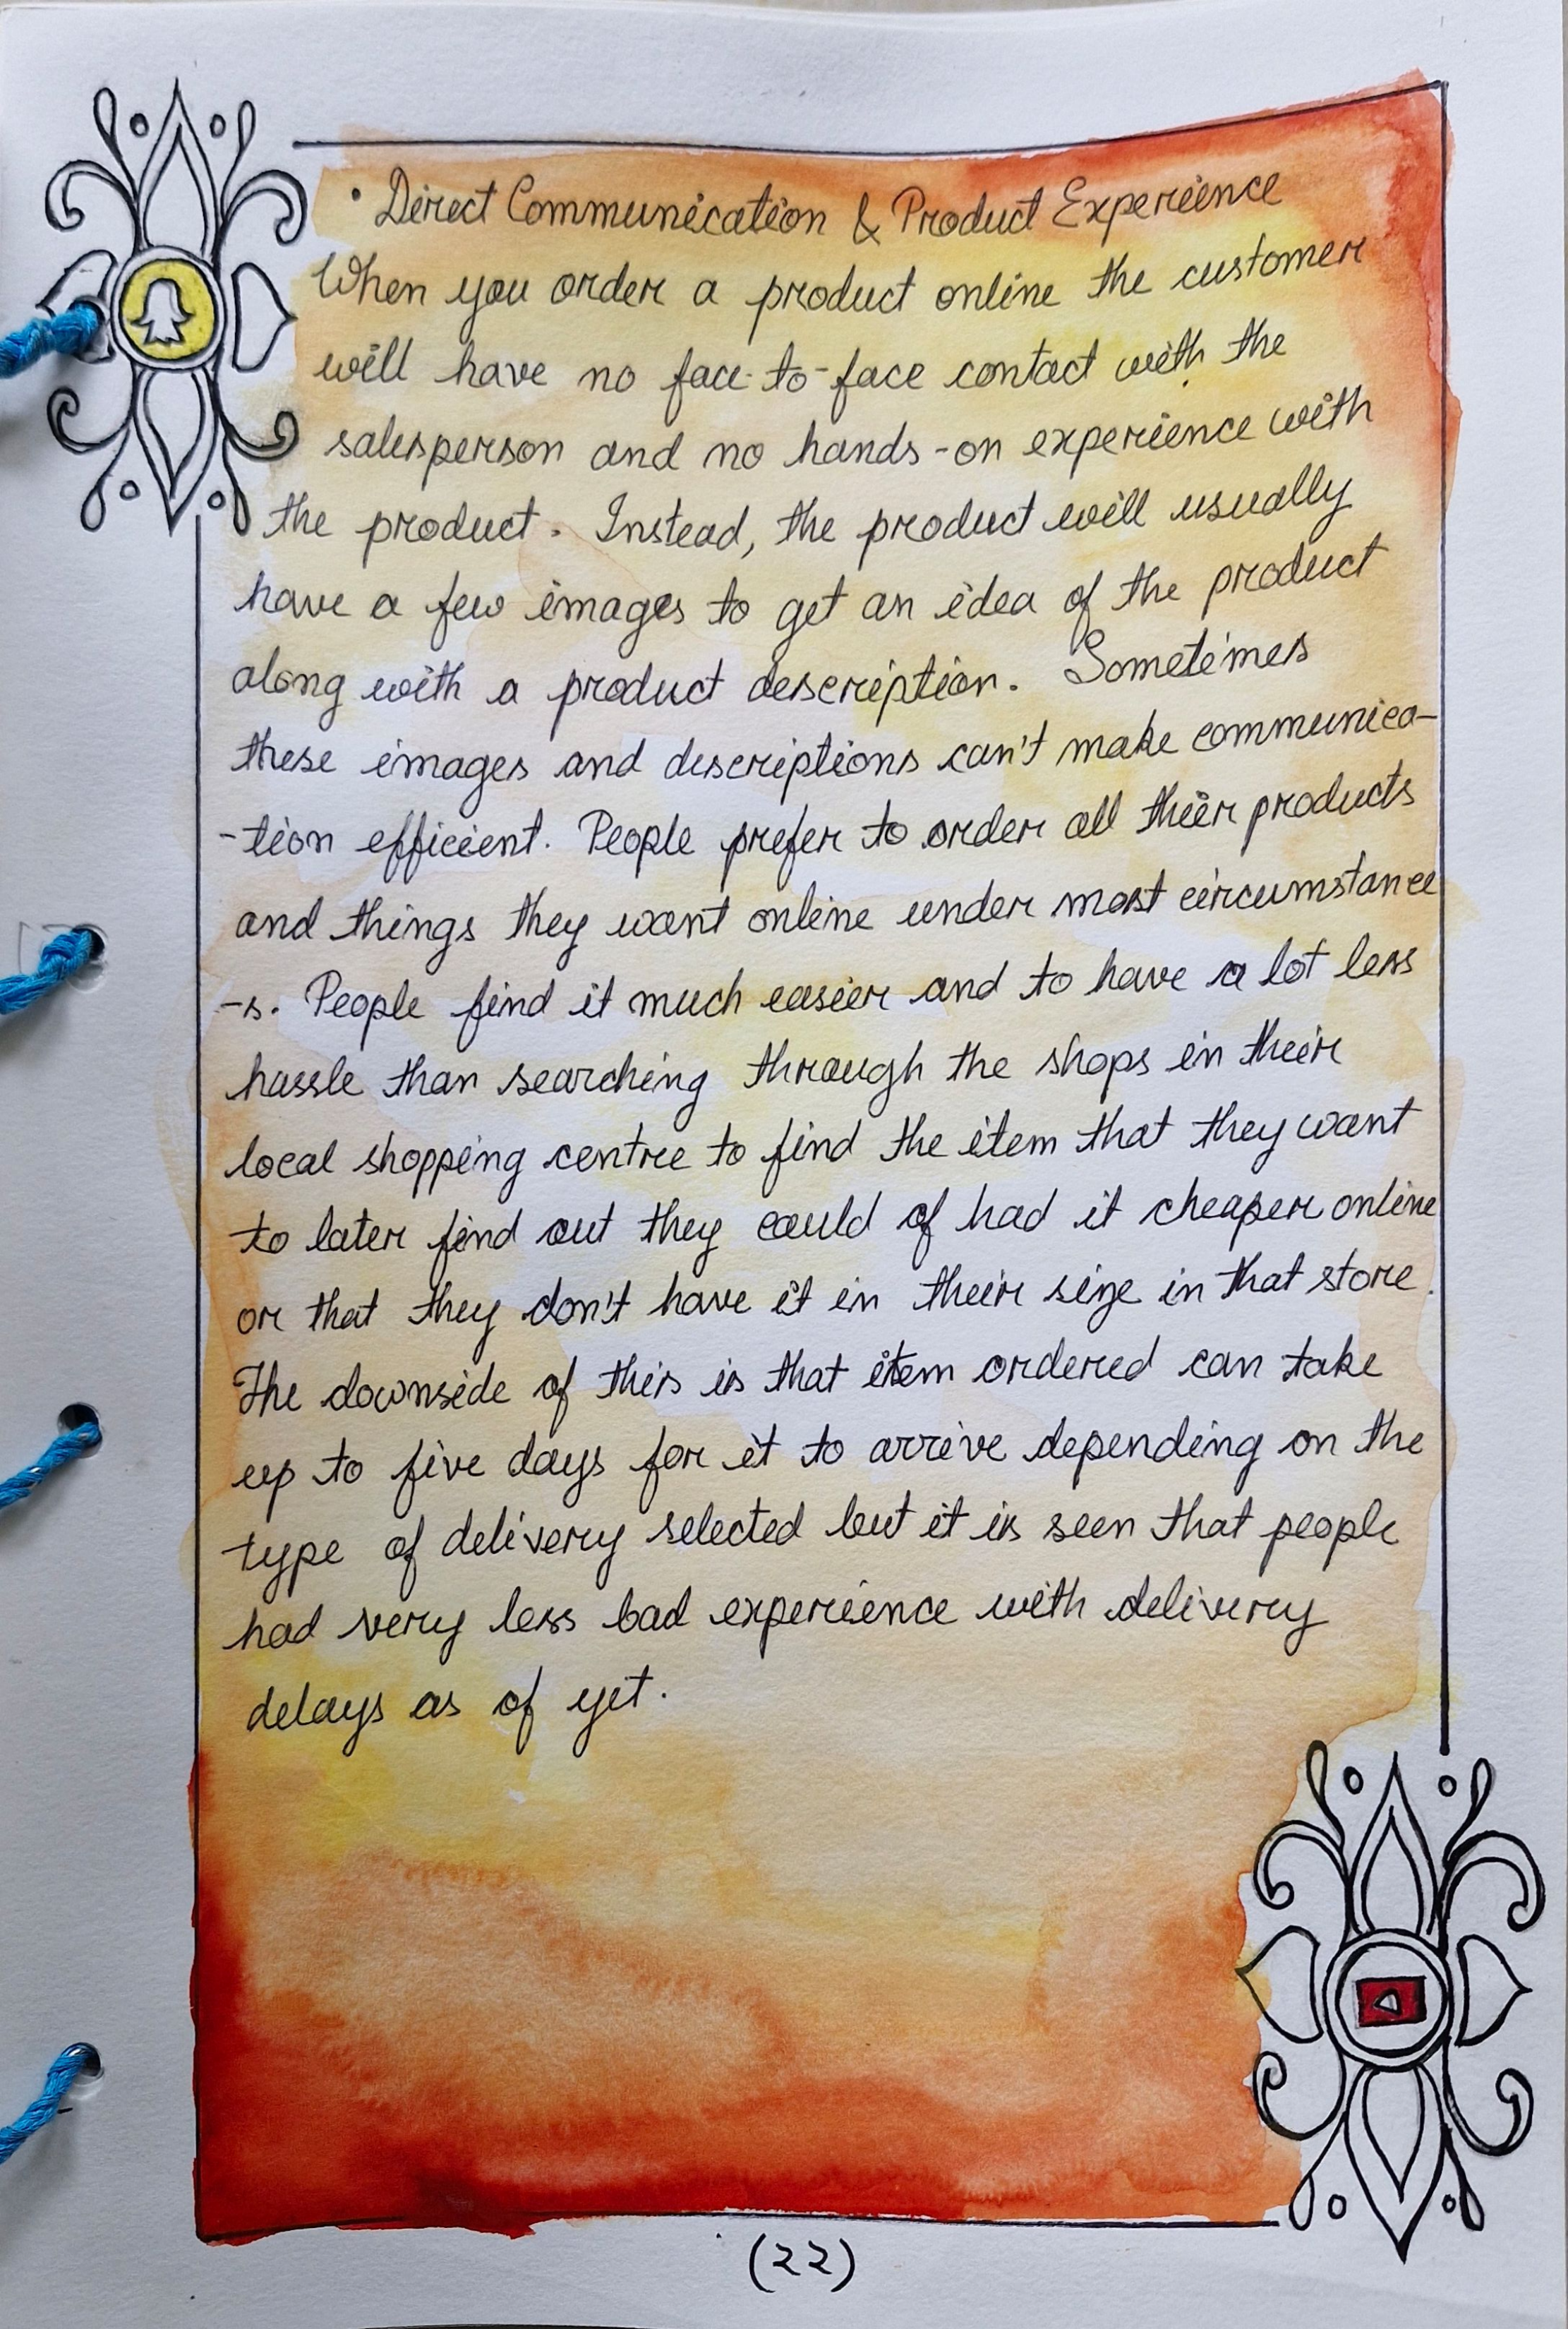 • Direct Communication & Product Experience
When you order a product online the customer
will have no face-to-face contact with the
salesperson and no hands-on experience with
the product. Instead, the product will usually
have a few images to get an idea of the product
along with a product description. Sometimes
these images and descriptions can't make communica-
-tion efficient. People prefer to order all their products
and things they want online under most circumstance
-s. People find it much easier and to have a lot less
hassle than searching through the shops in their
local shopping centre to find the item that they want
to later find out they could of had it cheaper online
or that they don't have it in their size in that store.
The downside of this is that item ordered can take
up to five days for it to arrive depending on the
type of delivery selected but it is seen that people
had very less bad experience with delivery
delays as of yet.
(22)